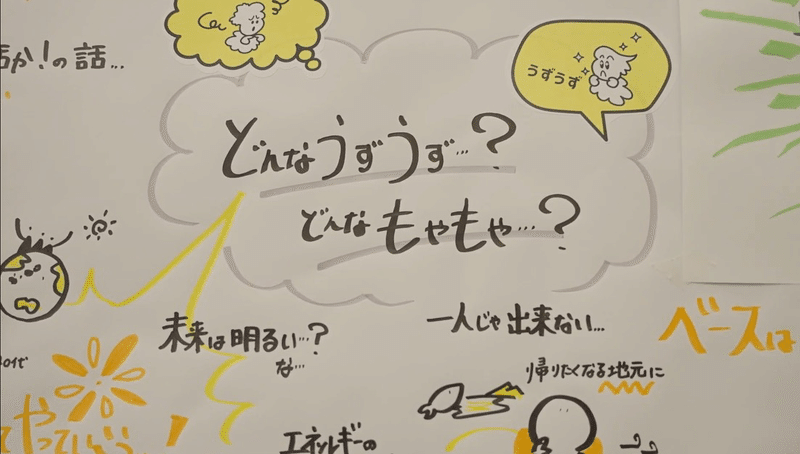 の話...
うずうず
どんなうずうず...?
どんなもやもや...?
未来は明るい...?
な...
一人じゃ出来ない...
ベースは
帰りたくなる地元に
エネルギーの